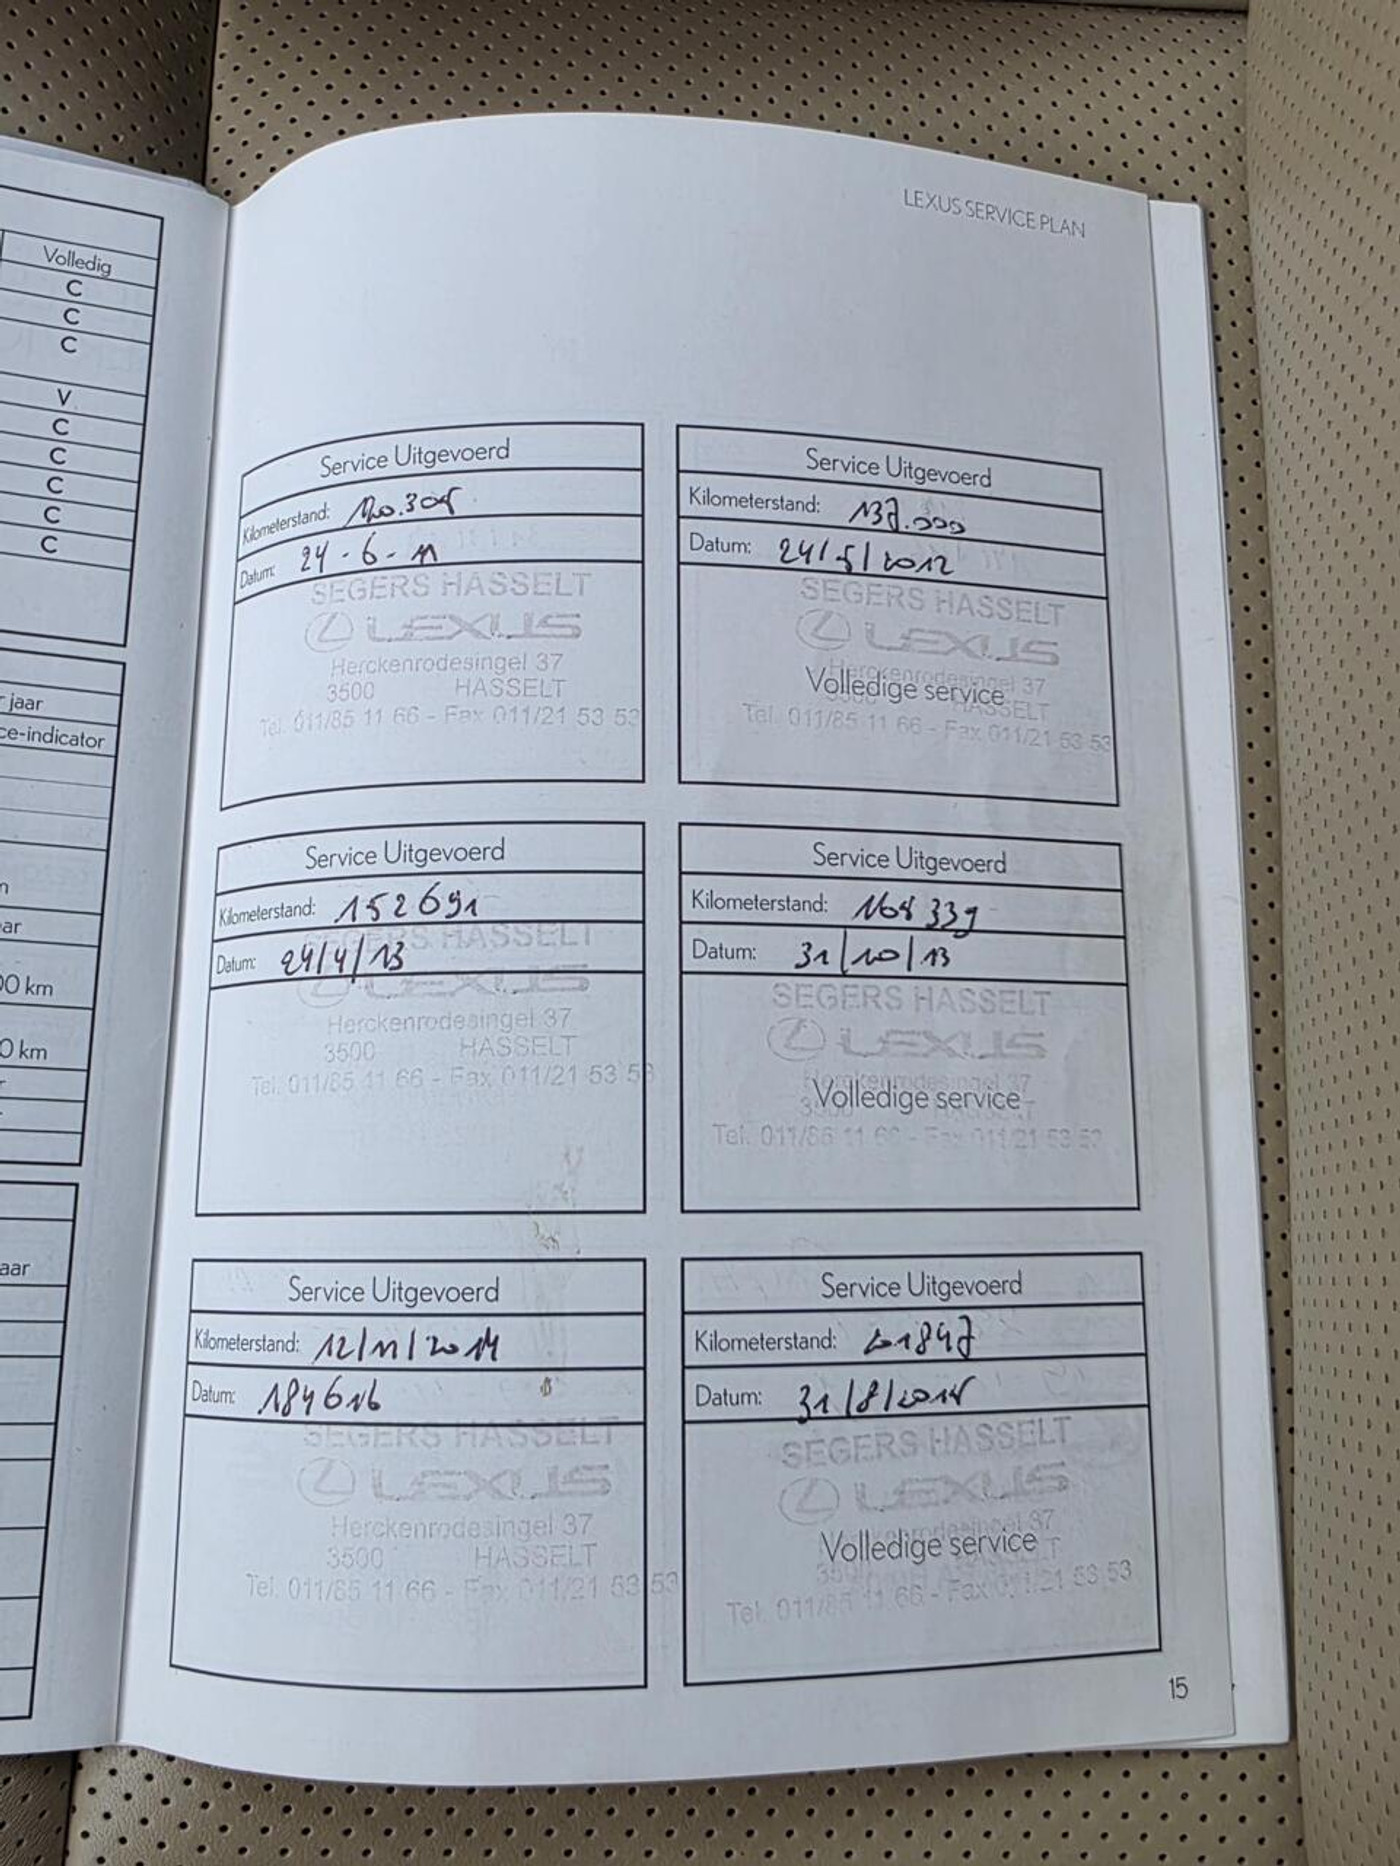 Volledig
C
C
C
V
C
C
C
C
C
jaar
ce-indicator
ar
00 km
0 km
aar
LEXUS SERVICE PLAN
Service Uitgevoerd
Kilometerstand: 120.305
Datum: 24-6-11
SEGERS HASSELT
LEXUS
Herckenrodesingel 37
3500 HASSELT
Tel. 011/85 11 66 - Fax 011/21 53 53
Service Uitgevoerd
Kilometerstand: 137.000
Datum: 24/5/2012
SEGERS HASSELT
LEXUS
Herckenrodesingel 37
Volledige service
HASSELT
Tel. 011/85 11 66 - Fax 011/21 53 53
Service Uitgevoerd
Kilometerstand: 152691
Datum: 24/4/13
SEGERS HASSELT
LEXUS
Herckenrodesingel 37
3500 HASSELT
Tel. 011/85 11 66 - Fax 011/21 53 53
Service Uitgevoerd
Kilometerstand: 168339
Datum: 31/10/13
SEGERS HASSELT
LEXUS
Herckenrodesingel 37
Volledige service
Tel. 011/85 11 66 - Fax 011/21 53 53
Service Uitgevoerd
Kilometerstand: 12/11/2014
Datum: 184616
SEGERS HASSELT
LEXUS
Herckenrodesingel 37
3500 HASSELT
Tel. 011/85 11 66 - Fax 011/21 53 53
Service Uitgevoerd
Kilometerstand: 201847
Datum: 31/8/2015
SEGERS HASSELT
LEXUS
Herckenrodesingel 37
Volledige service
Tel. 011/85 11 66 - Fax 011/21 53 53
15